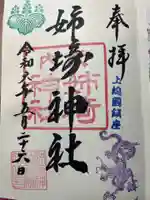 奉拝
上総國鎮座
姉埼神社
令和六年五月二十六日